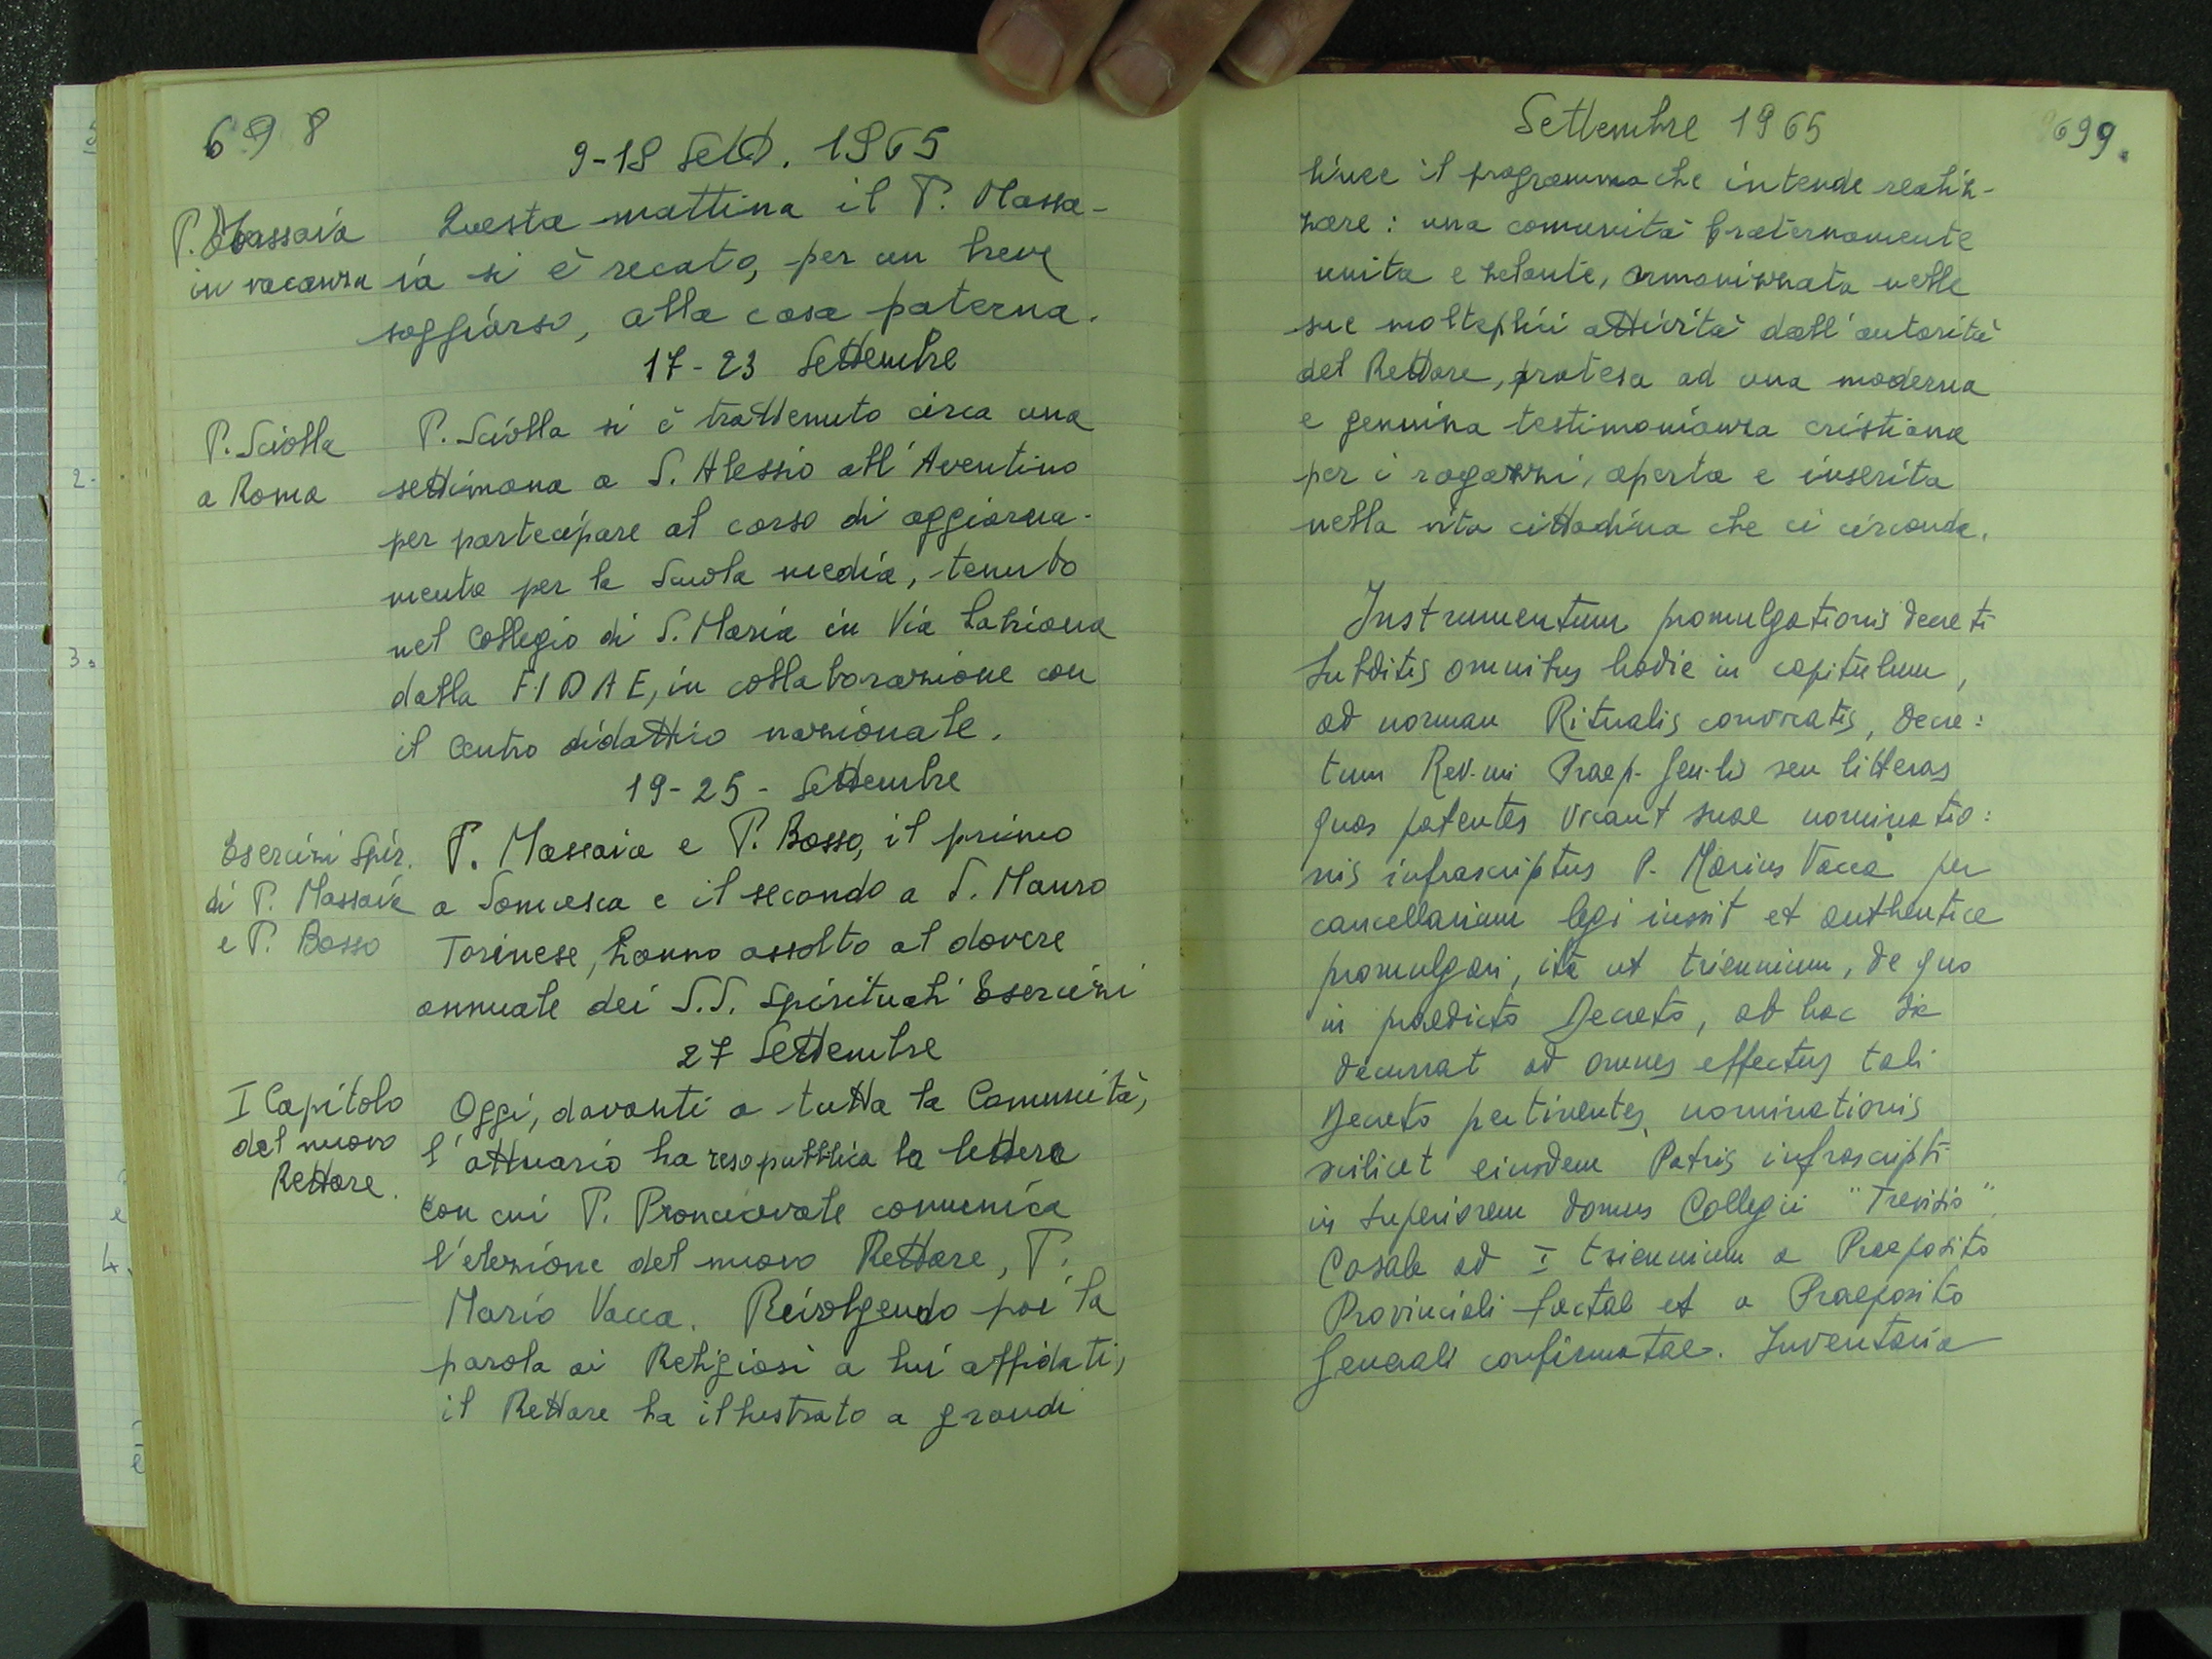 698
9-18 Sett. 1965
P. Massaia
in vacanza
Questa mattina il P. Massa-
ia si è recato, per un breve
soggiorso, alla casa paterna.
17-23 Settembre
P. Sciolla
a Roma
P. Sciolla si è trattenuto circa una
settimana a S. Alessio all'Aventino
per partecipare al corso di aggiorna-
mento per la Scuola media, tenuto
nel Collegio di S. Maria in Via
dalla FIDAE, in collaborazione con
il Centro didattico nazionale.
19-25 - Settembre
Esercizi Spir.
di P. Massaia
e P. Bosso
P. Massaia e P. Bosso, il primo
a Somasca e il secondo a S. Mauro
Torinese, hanno assolto al dovere
annuale dei S.S. Spirituali Esercizi
27 Settembre
I Capitolo
del nuovo
Rettore.
Oggi, davanti a tutta la Comunità,
l'attuario ha reso pubblica la lettera
con cui P. Provinciale comunica
l'elezione del nuovo Rettore, P.
Mario Vacca. Rivolgendo poi la
parola ai Religiosi a lui affidati,
il Rettore ha illustrato a grandi
Settembre 1965
699.
linee il programma che intende realiz-
zare: una comunità fraternamente
unita e zelante, armonizzata nelle
sue molteplici attività dall'autorità
del Rettore, protesa ad una moderna
e genuina testimonianza cristiana
per i ragazzi, aperta e inserita
nella vita cittadina che ci circonda.
Instrumentum promulgationis decreti
Subditis omnibus hodie in capitulum,
ad normam Ritualis convocatis, decre:
tum Rev.mi Praep. Gen.lis seu litteras
quas patentes vocant suae nominatio:
nis infrascriptus P. Marius Vacca per
cancellarium legi iussit et authentice
promulgari, ita ut triennium, de quo
in praedicto Decreto, ab hac die
decurrat ad omnes effectus tali
Decreto pertinentes, nominationis
scilicet eiusdem Patris infrascripti
in Superiorem domus Collegii "Trevisio"
Casale ad I triennium a Praeposito
Provinciali factae et a Praeposito
Generali confirmatae. Inventaria